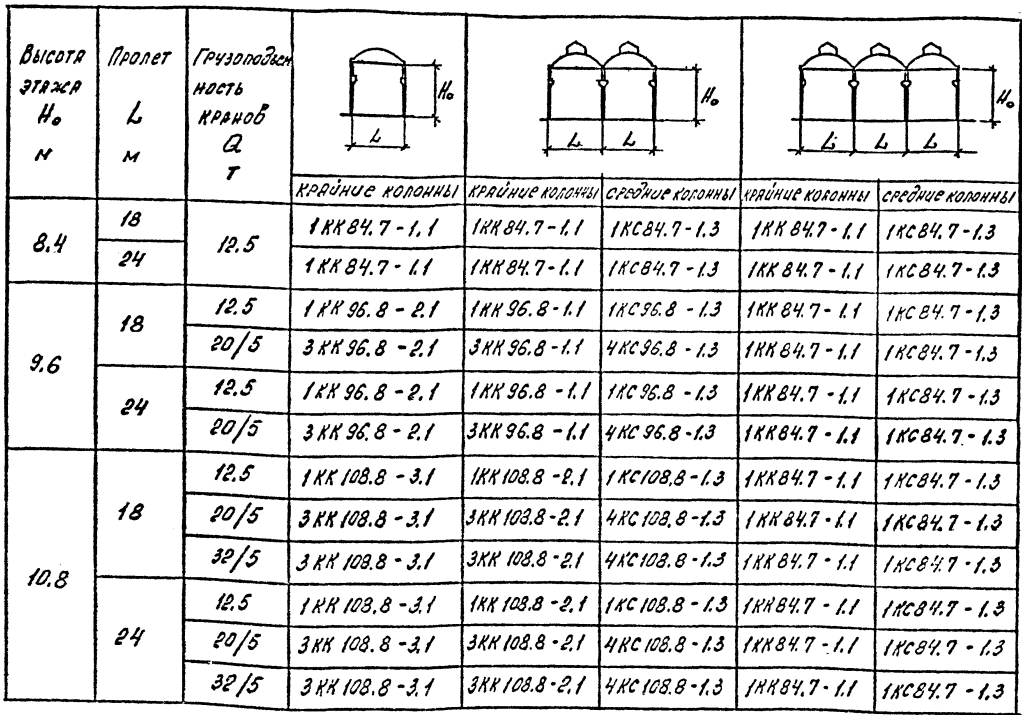 Высота этажа H₀ м
Пролет L м
Грузоподъем ность кранов Q т
L H₀
L L H₀
L L L H₀
крайние колонны крайние колонны средние колонны крайние колонны средние колонны
8.4 18 12.5 1КК84.7-1.1 1КК84.7-1.1 1КС84.7-1.3 1КК84.7-1.1 1КС84.7-1.3
24 1КК84.7-1.1 1КК84.7-1.1 1КС84.7-1.3 1КК84.7-1.1 1КС84.7-1.3
9.6 18 12.5 1КК96.8-2.1 1КК96.8-1.1 1КС96.8-1.3 1КК84.7-1.1 1КС84.7-1.3
20/5 3КК96.8-2.1 3КК96.8-1.1 4КС96.8-1.3 1КК84.7-1.1 1КС84.7-1.3
24 12.5 1КК96.8-2.1 1КК96.8-1.1 1КС96.8-1.3 1КК84.7-1.1 1КС84.7-1.3
20/5 3КК96.8-2.1 3КК96.8-1.1 4КС96.8-1.3 1КК84.7-1.1 1КС84.7-1.3
10.8 18 12.5 1КК108.8-3.1 1КК108.8-2.1 1КС108.8-1.3 1КК84.7-1.1 1КС84.7-1.3
20/5 3КК108.8-3.1 3КК108.8-2.1 4КС108.8-1.3 1КК84.7-1.1 1КС84.7-1.3
32/5 3КК108.8-3.1 3КК108.8-2.1 4КС108.8-1.3 1КК84.7-1.1 1КС84.7-1.3
24 12.5 1КК108.8-3.1 1КК108.8-2.1 1КС108.8-1.3 1КК84.7-1.1 1КС84.7-1.3
20/5 3КК108.8-3.1 3КК108.8-2.1 4КС108.8-1.3 1КК84.7-1.1 1КС84.7-1.3
32/5 3КК108.8-3.1 3КК108.8-2.1 4КС108.8-1.3 1КК84.7-1.1 1КС84.7-1.3